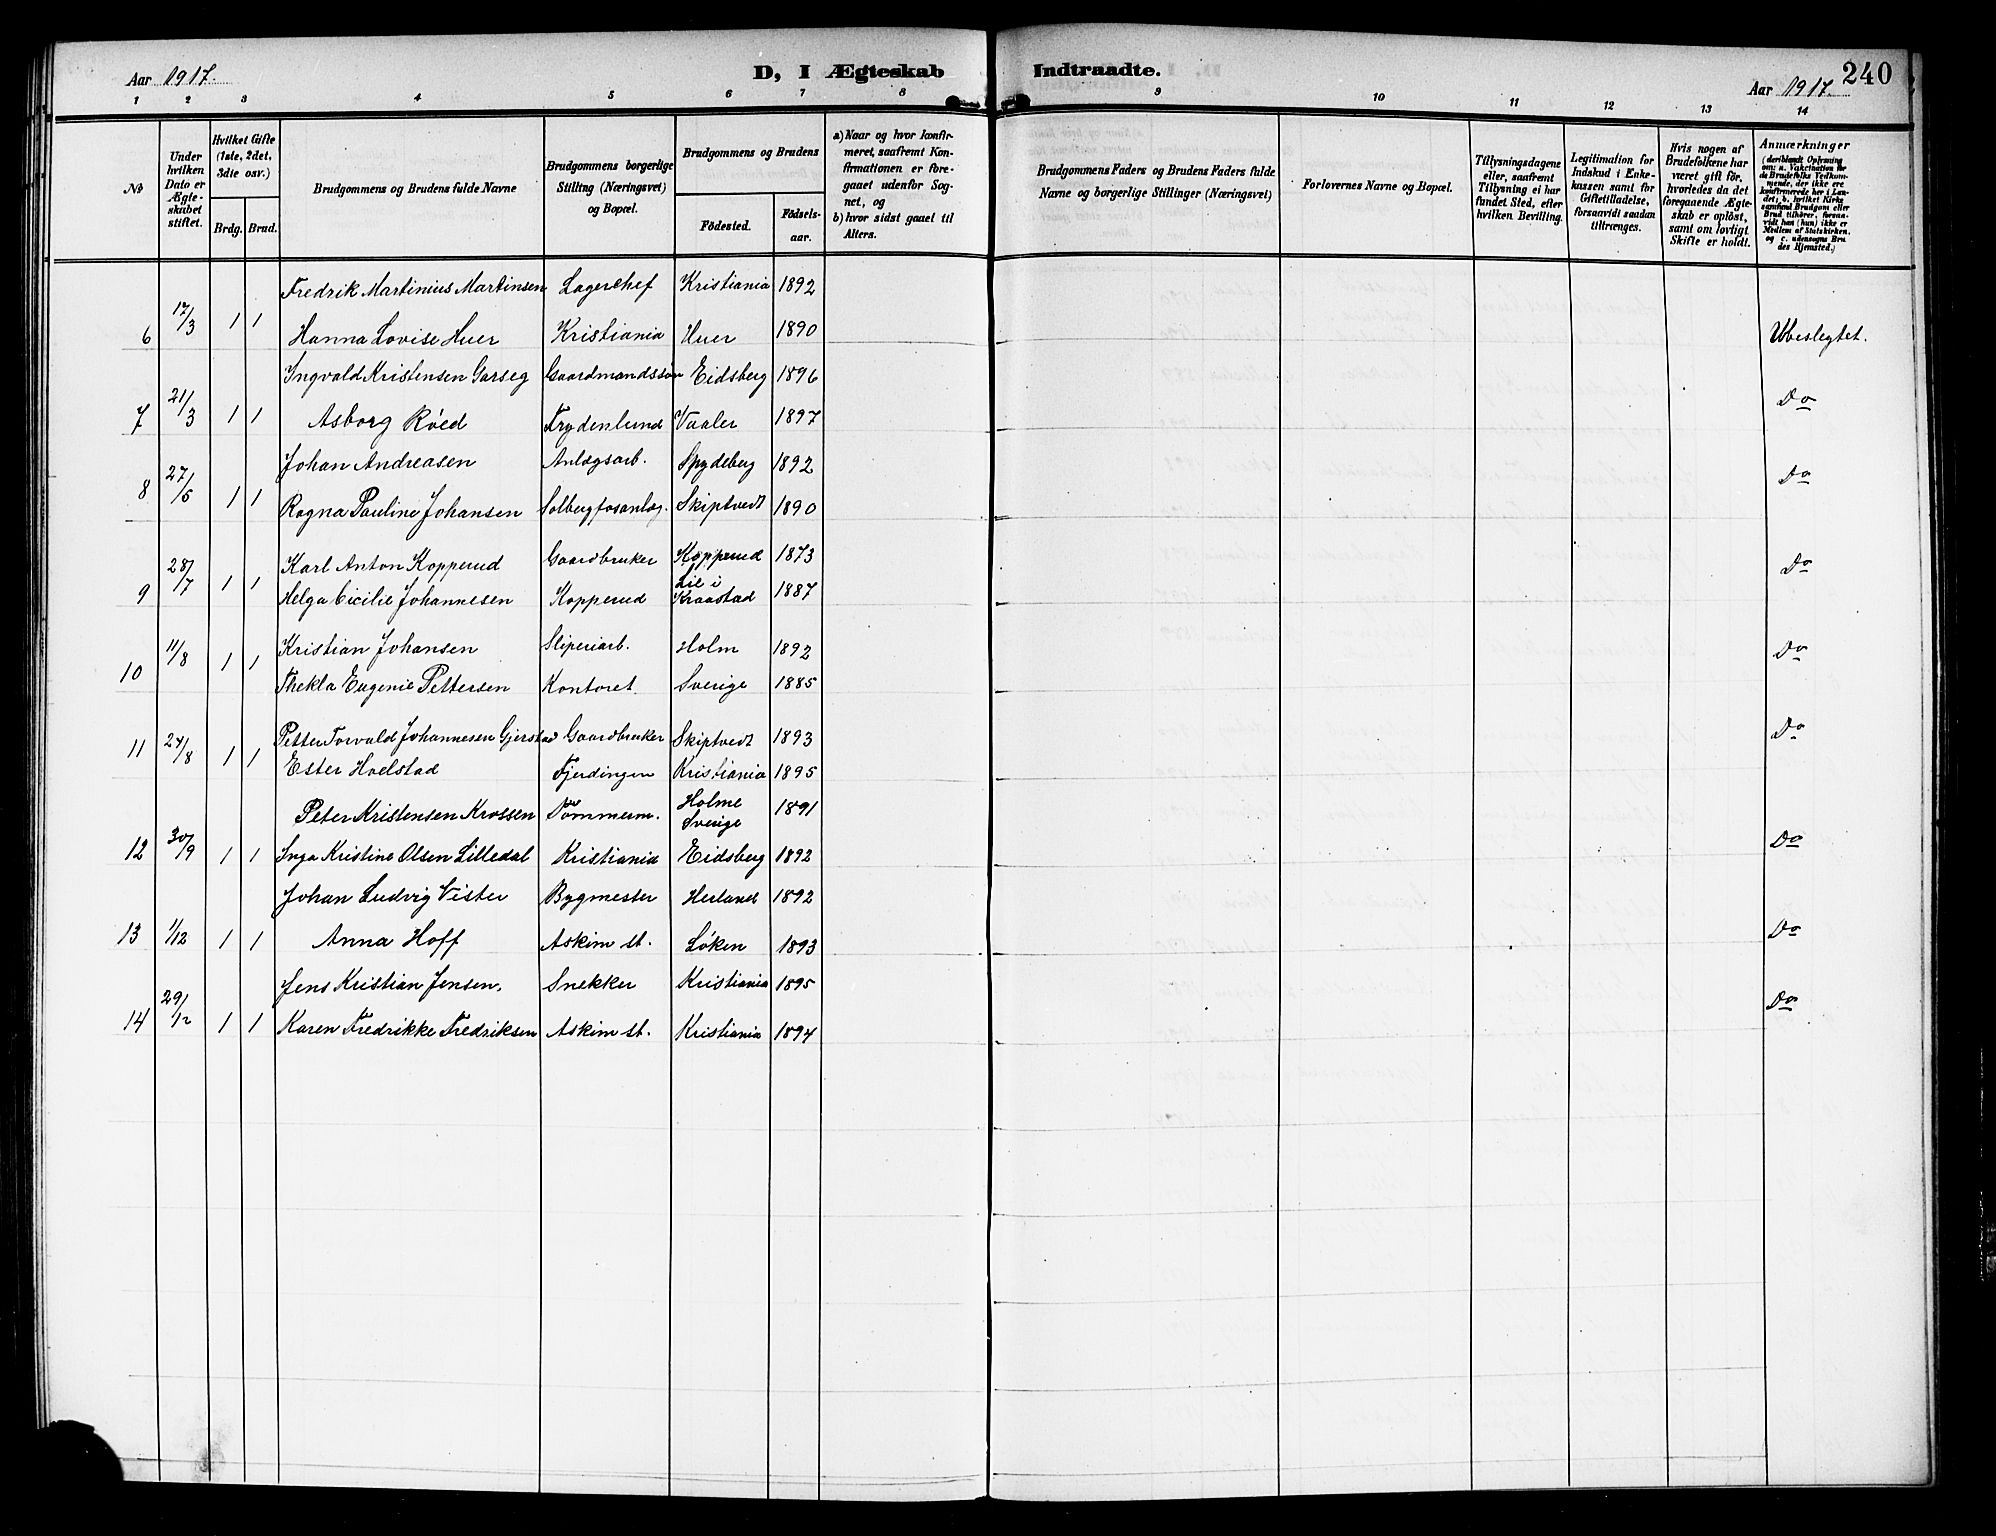 Aar 1917. D, I Ægteskab Indtraadte. Aar 1917. 240
1 2 3 4 5 6 7 8 9 10 11 12 13 14
No
Under hvilken Dato er Ægteskabet stiftet.
Hvilket Gifte (1ste, 2det, 3die osv.)
Brdg. Brud.
Brudgommens og Brudens fulde Navne
Brudgommens borgerlige Stilling (Næringsvei) og Bopæl.
Brudgommens og Brudens
Födested.
Födsels-aar.
a) Naar og hvor konfir-
meret, saafremt Kon-
firmationen er fore-
gaaet udenfor Sog-
net, og
b) hvor sidst gaaet til
Alters.
Brudgommens Faders og Brudens Faders fulde
Navne og borgerlige Stillinger (Næringsvei)
Forlovernes Navne og Bopæl.
Tillysningsdagene
eller, saafremt
Tillysning ei har
fundet Sted, efter
hvilken Bevilling.
Legitimation for
Indskud i Enke-
kassen samt for
Giftetilladelse,
forsaavidt saadan
tiltrænges.
Hvis nogen af
Brudefolkene har
været gift för,
hvorledes da det
foregaaende Ægte-
skab er oplöst,
samt om lovligt
Skifte er holdt.
Anmærkninger
(deriblandt Oplysning
om: a. Vakcination for
de Brudefolks Vedkom-
mende, der ikke ere
konfirmerede her i Lan-
det; b. hvilket Kirke
samfund Brudgom eller
Brud tilhører, forsaa-
vidt han (hun) ikke er
Medlem af Statskirken.
og c. udensogns Bru
des Hjemsted.)
Fredrik Martinius Martinsen Lagerchef Kristiania 1892
6 17/3 1 1 Hanna Lovise Huer Kristiania Huer 1890 Ubeslegtet.
Ingvald Kristensen Garseg Gaardmandssøn Eidsberg 1896
7 21/3 1 1 Asborg Röed Frydenlund Vaaler 1897 Do
Johan Andreasen Anlægsarb. Spydeberg 1892
8 27/5 1 1 Ragna Pauline Johansen Solbergfosanlæg. Skiptvedt 1890 Do
Karl Anton Kopperud Gaardbruker Kopperud 1873
9 28/7 1 1 Helga Cicilie Johannesen Kopperud Lie i Kraastad 1887 Do
Kristian Johansen Sliperiarb. Holm 1892
10 11/8 1 1 Thekla Eugenie Pettersen Kontoret Sverige 1885 Do
Petter Torvald Johannesen Gjerstad Gaardbruker Skiptvedt 1893
11 24/8 1 1 Ester Hoelstad Fjerdingen Kristiania 1895 Do
Peter Kristensen Krossen Tömmerm. Holme Sverige 1891
12 30/9 1 1 Inga Kristine Olsen Lilledal Kristiania Eidsberg 1892 Do
Johan Ludvig Vister Bygmester Herland 1892
13 1/12 1 1 Anna Hoff Askim st. Löken 1893 Do
Jens Kristian Jensen. Snekker Kristiania 1895
14 29/12 1 1 Karen Fredrikke Fredriksen Askim st. Kristiania 1894 Do